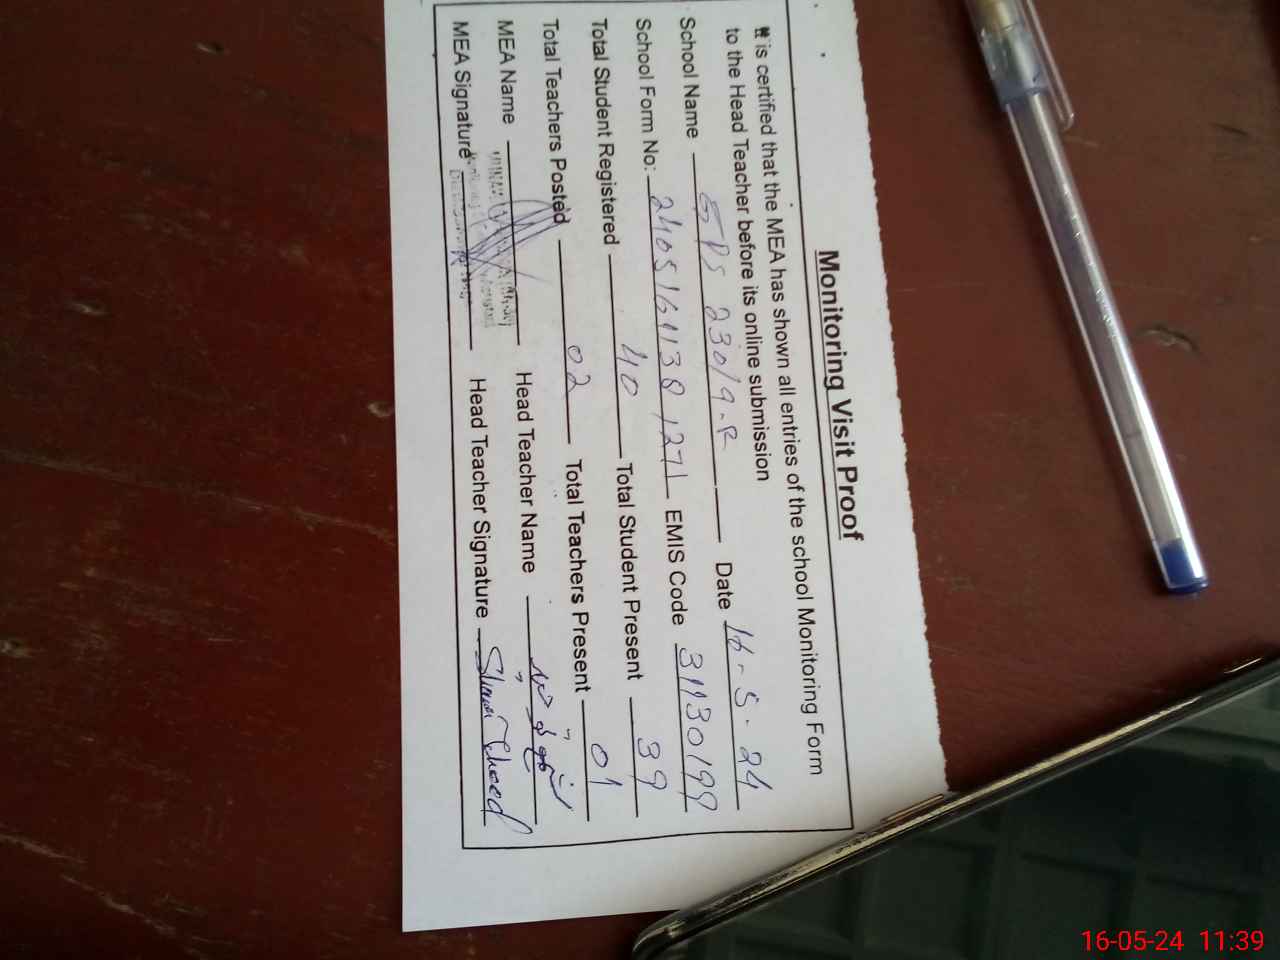 Monitoring Visit Proof
It is certified that the MEA has shown all entries of the school Monitoring Form
to the Head Teacher before its online submission
School Name GPS 230/9-R Date 16-5-24
School Form No: 24051611381271 EMIS Code 31130199
Total Student Registered 40 Total Student Present 39
Total Teachers Posted 02 Total Teachers Present 01
MEA Name Head Teacher Name
MEA Signature Head Teacher Signature
16-05-24 11:39